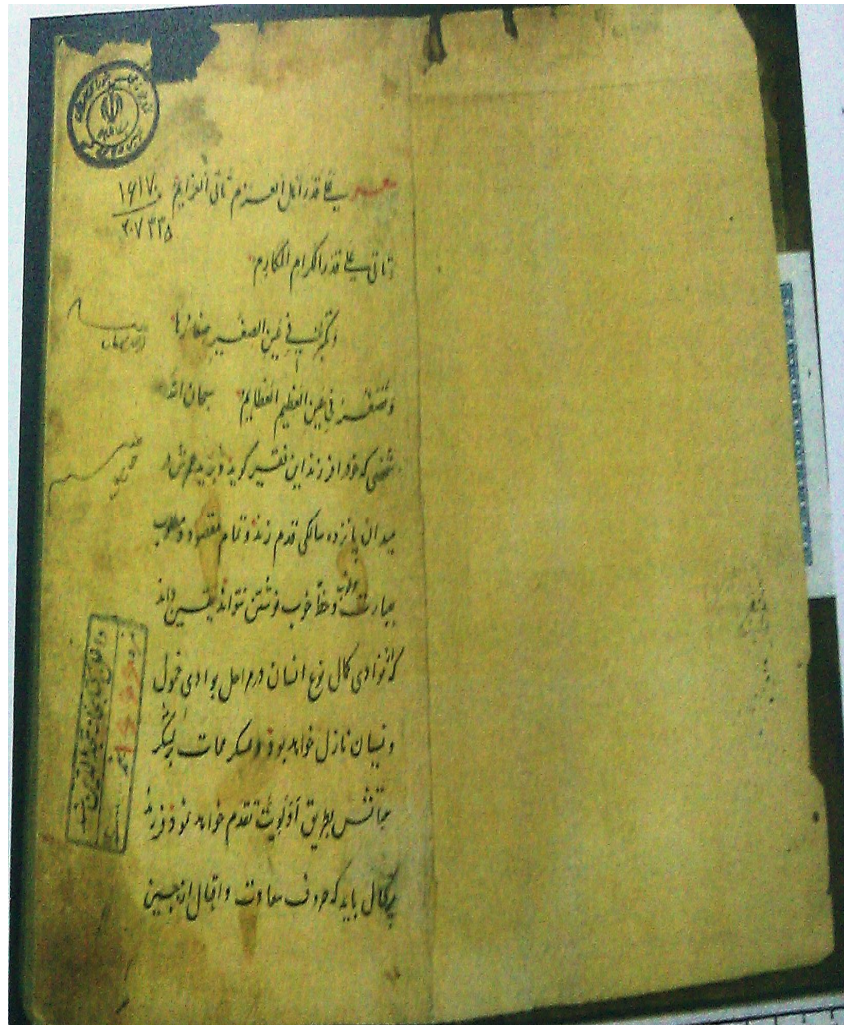 شعر علی قدر اهل العزم تاتی العزایم
۱۶۱۷۰
۲۰۷۳۳۵
و تاتی علی قدر الکرام المکارم
و تکبر فی عین الصغیر صغارها
و تصغر فی عین العظیم العظایم سبحان الله
شخصی که خود را فرزند این فقیر گوید و باید عمرش در
میدان پانزده سالکی قدم زند و تمام مقصود و مطلوب
بعبارت خوب و خط خوب نوشتن نتواند یقین داند
که از نوادی کمال نوع انسان در مراحل بوادی خمول
و نسیان نازل خواهد بود و عسکر ممات بر لشکر
حیاتش بطریق اولویت تقدم خواهد نمود فرزند
پرکمال باید که حروف سعادت و اقبال از جبین